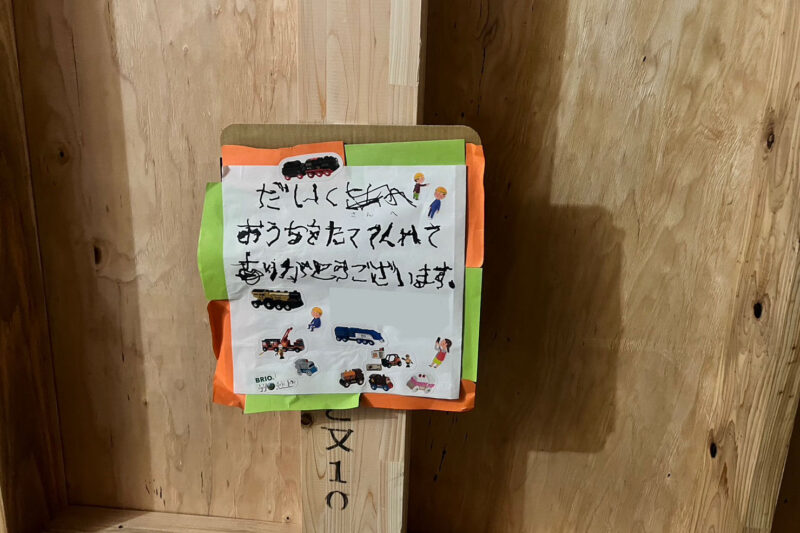 だいく
さんへ
おうちをたててくれて
ありがとうございます。
BRIO
又10